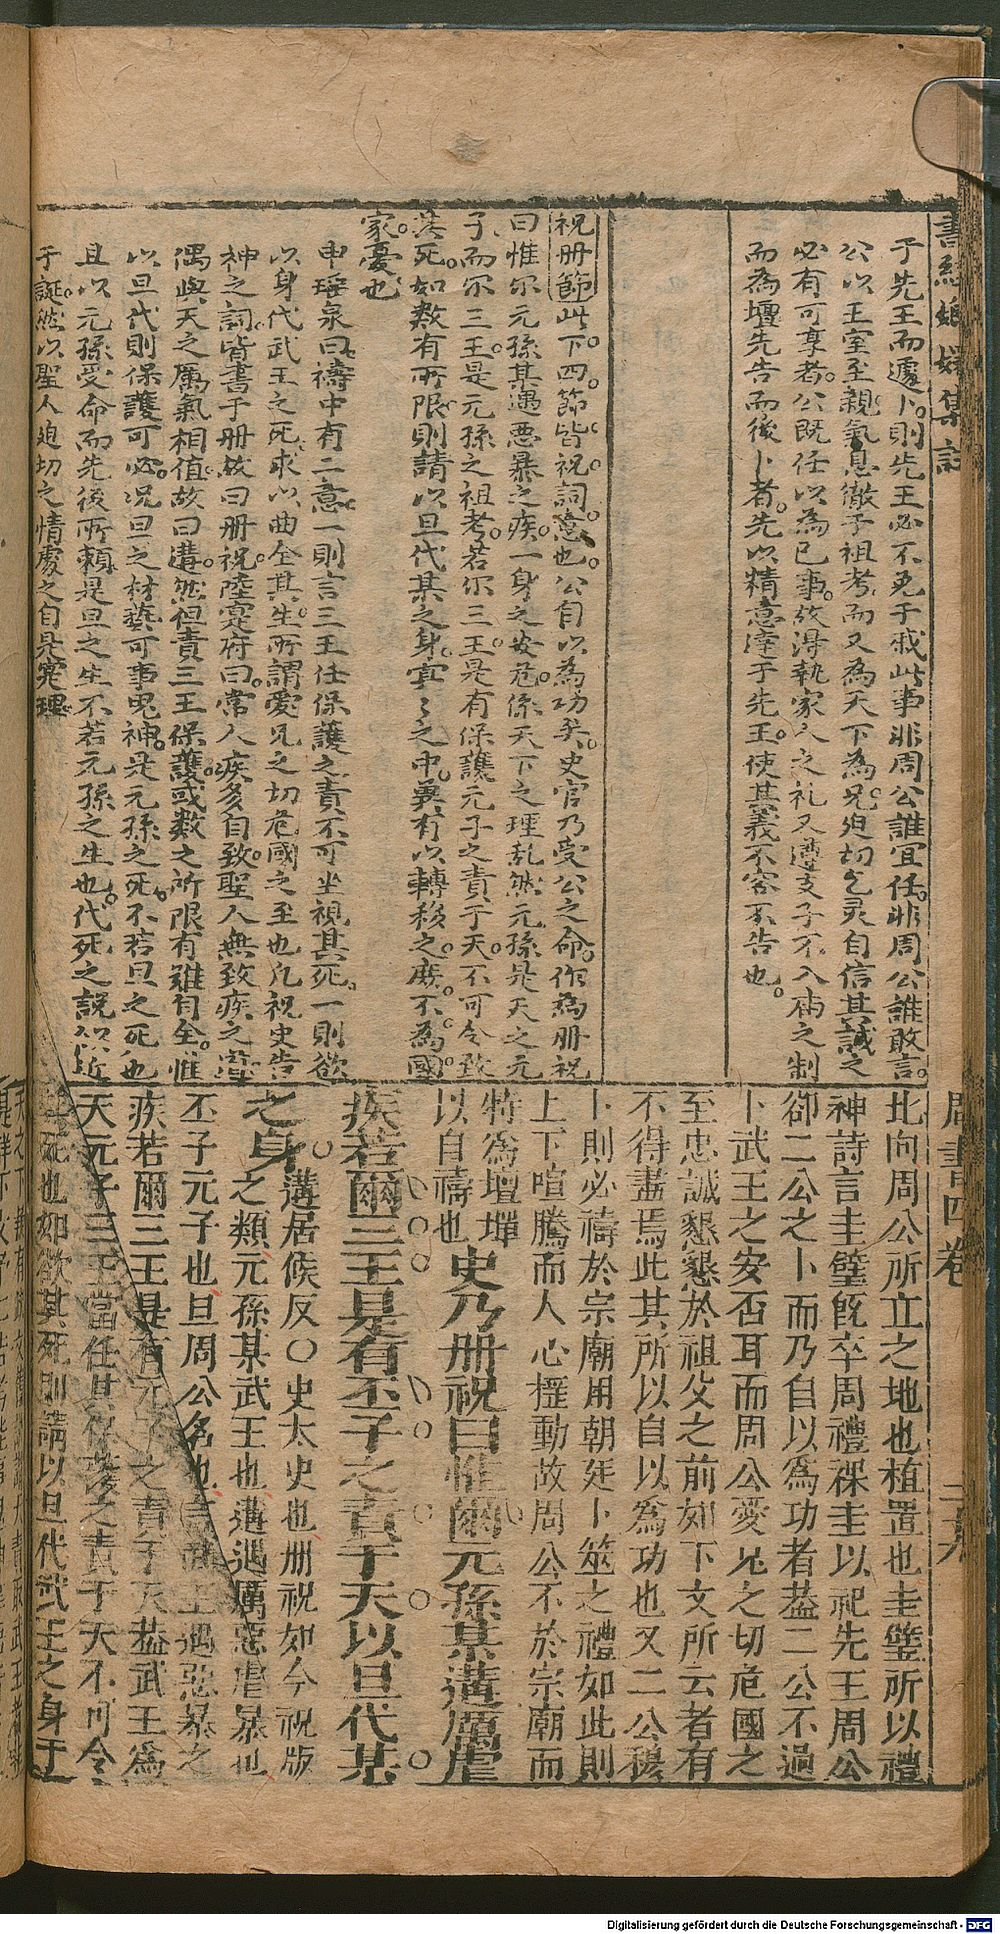 書經嫏嬛集註
于先王而遽卜則先王必不免于戚此事非周公誰宜任非周公誰敢言
公以王室至親氣息徹于祖考而又為天下為兄迫切乞灵自信其誠之
必有可享者公既任以為已事故得執家人之礼又遵支子不入庙之制
而為壇先告而後卜者先以精意孚于先王使其義不容不告也
祝册節此下四節皆祝詞意也公自以為功矣史官乃受公之命作為册祝
曰惟尔元孫某遇悪暴之疾一身之安危係天下之理乱然元孫是天之元
子而尔三王是元孫之祖考若尔三王是有保護元子之責于天不可令致
其死如数有所限則請以旦代某之身冥〻之中兾有以轉移之庶不為國
家憂也
申瑶泉曰禱中有二意一則言三王任保護之責不可坐視其死一則欲
以身代武王之死求以曲全其生所謂愛兄之切危國之至也凡祝史告
神之詞皆書于册故曰册祝陸寔府曰常人疾多自致聖人無致疾之
偶與天之厲氣相值故曰遘然但責三王保護或数之所限有難自全惟
以旦代則保護可必况旦之材藝可事鬼神是元孫之死不若旦之死也
且以元孫受命而先後所頼是旦之生不若元孫之生也代死之說似近
于誕然以聖人迫切之情處之自是寔理
周書四卷
北向周公所立之地也植置也圭璧所以禮
神詩言圭璧既卒周禮祼圭以祀先王周公
卻二公之卜而乃自以爲功者葢二公不過
卜武王之安否耳而周公愛兄之切危國之
至忠誠懇懇於祖父之前如下文所云者有
不得盡焉此其所以自以爲功也又二公穆
卜則必禱於宗廟用朝廷卜筮之禮如此則
上下喧騰而人心摇動故周公不於宗廟而
特爲壇墠
以自禱也
史乃册祝曰惟爾元孫某遘厲虐
疾若爾三王是有丕子之責于天以旦代某
之身
遘居候反〇史太史也册祝如今祝版
之類元孫某武王也遘遇厲惡虐暴也
丕子元子也旦周公名也言武王遇惡暴之
疾若爾三王是有元子之責于天葢武王爲
天元子三王當任其保護之責于天不可令
其死也如欲其死則請以旦代武王之身于